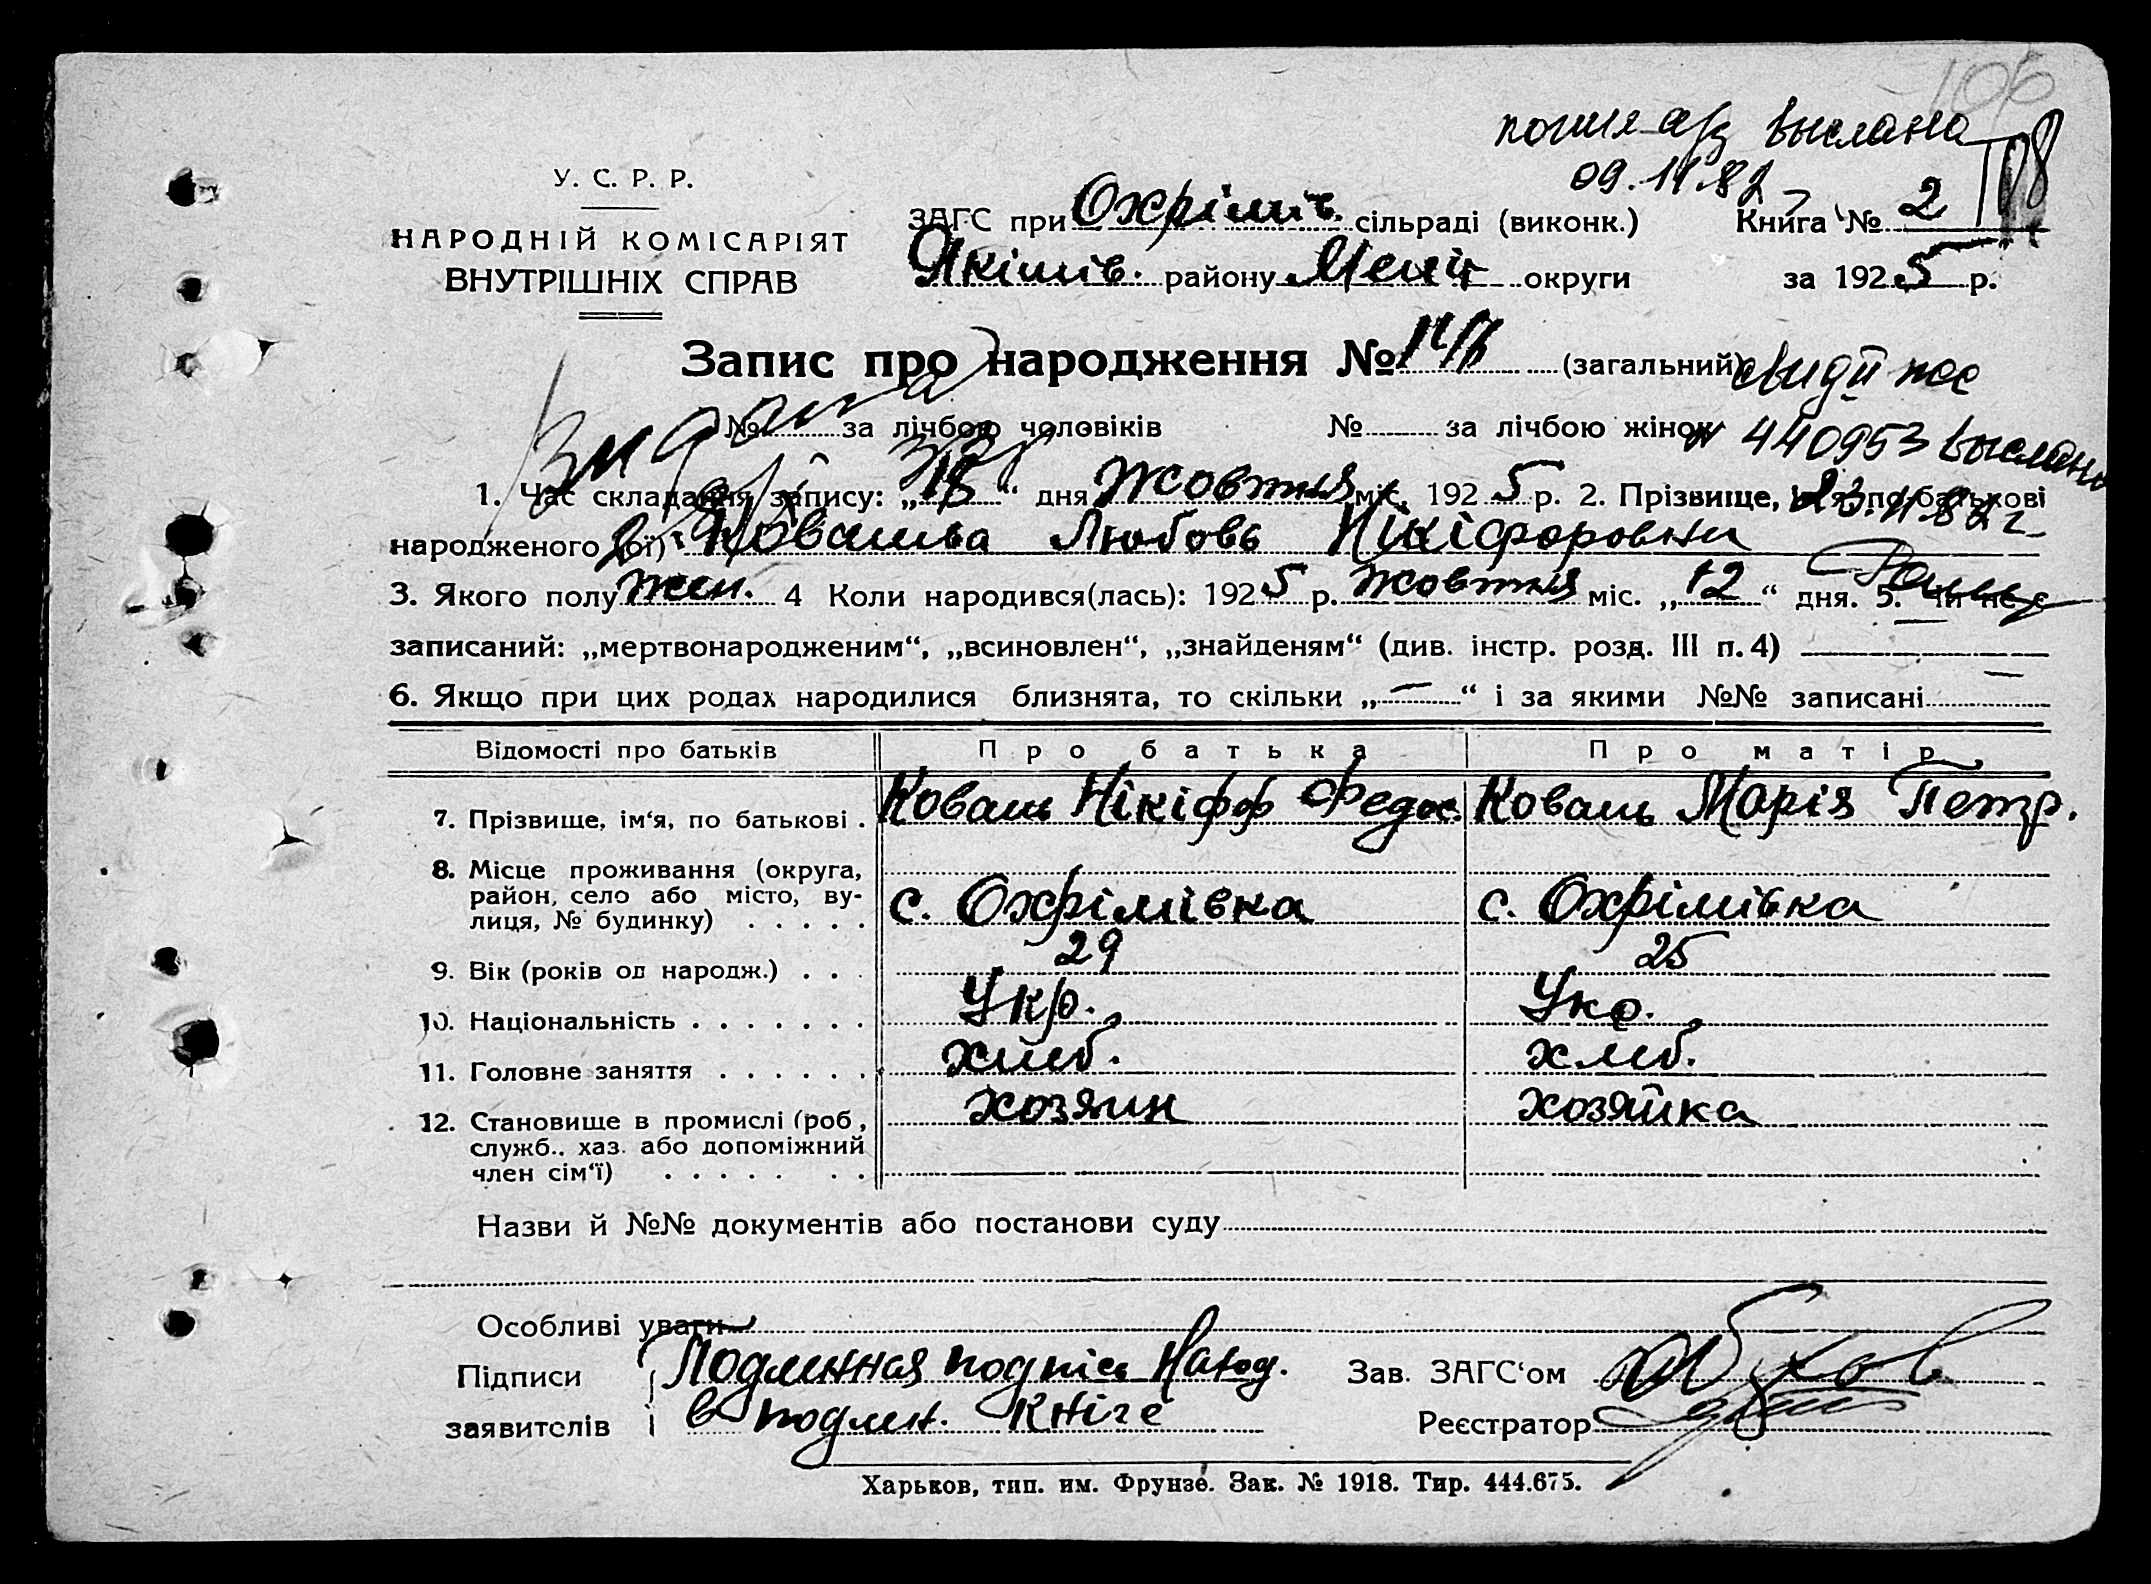 106
выслана
09.11.82
108
У. С. Р. Р.
НАРОДНІЙ КОМІСАРІЯТ
ВНУТРІШНІХ СПРАВ
ЗАГС при Охрімів. сільраді (виконк.) Книга № 2
Якімів. району Меліт округи за 1925 р.
Запис про народження № (загальний)
№ за лічбою чоловіків № за лічбою жінок
№ 440953 выслано
23.11.82 г.
1. Час складання запису: „18“ дня Жовтня міс. 1925 р. 2. Прізвище, ім'я, по батькові
народженого (ої) Ковальва Любовь Нікіфоровни
3. Якого полу жен. 4 Коли народився(лась): 1925 р. жовтня міс. „12“ дня. 5. Чи не є
записаний: „мертвонародженим“, „всиновлен“, „знайденям“ (див. інстр. розд. III п. 4)
6. Якщо при цих родах народилися близнята, то скільки „—“ і за якими №№ записані —
Відомості про батьків Про батька Про матір
7. Прізвище, ім'я, по батькові . Коваль Нікіфор Федос. Коваль Марія Петр.
8. Місце проживання (округа,
район, село або місто, ву-
лиця, № будинку) . . . . . с. Охрімівка с. Охрімівка
9. Вік (років од народж.) . . . 29 25
10. Національність . . . . . . . Укр. Укр.
11. Головне заняття . . . . . . хліб. хліб.
12. Становище в промислі (роб., хозяин хозяйка
служб., хаз. або допоміжний
член сім'ї) . . . . . . .
Назви й №№ документів або постанови суду
Особливі уваги
Підписи Подлинная подпісь наход. Зав. ЗАГС'ом
заявителів в подлин. кніге Реєстратор
Харьков, тип. им. Фрунзе. Зак. № 1918. Тир. 444.675.